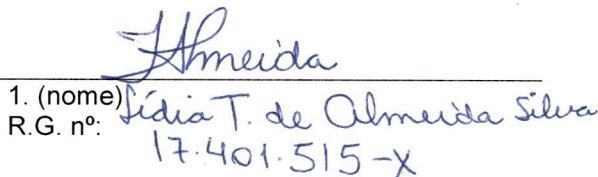 Almeida
1. (nome) Lídia T. de Almeida Silva
R.G. nº:
17.401.515-X